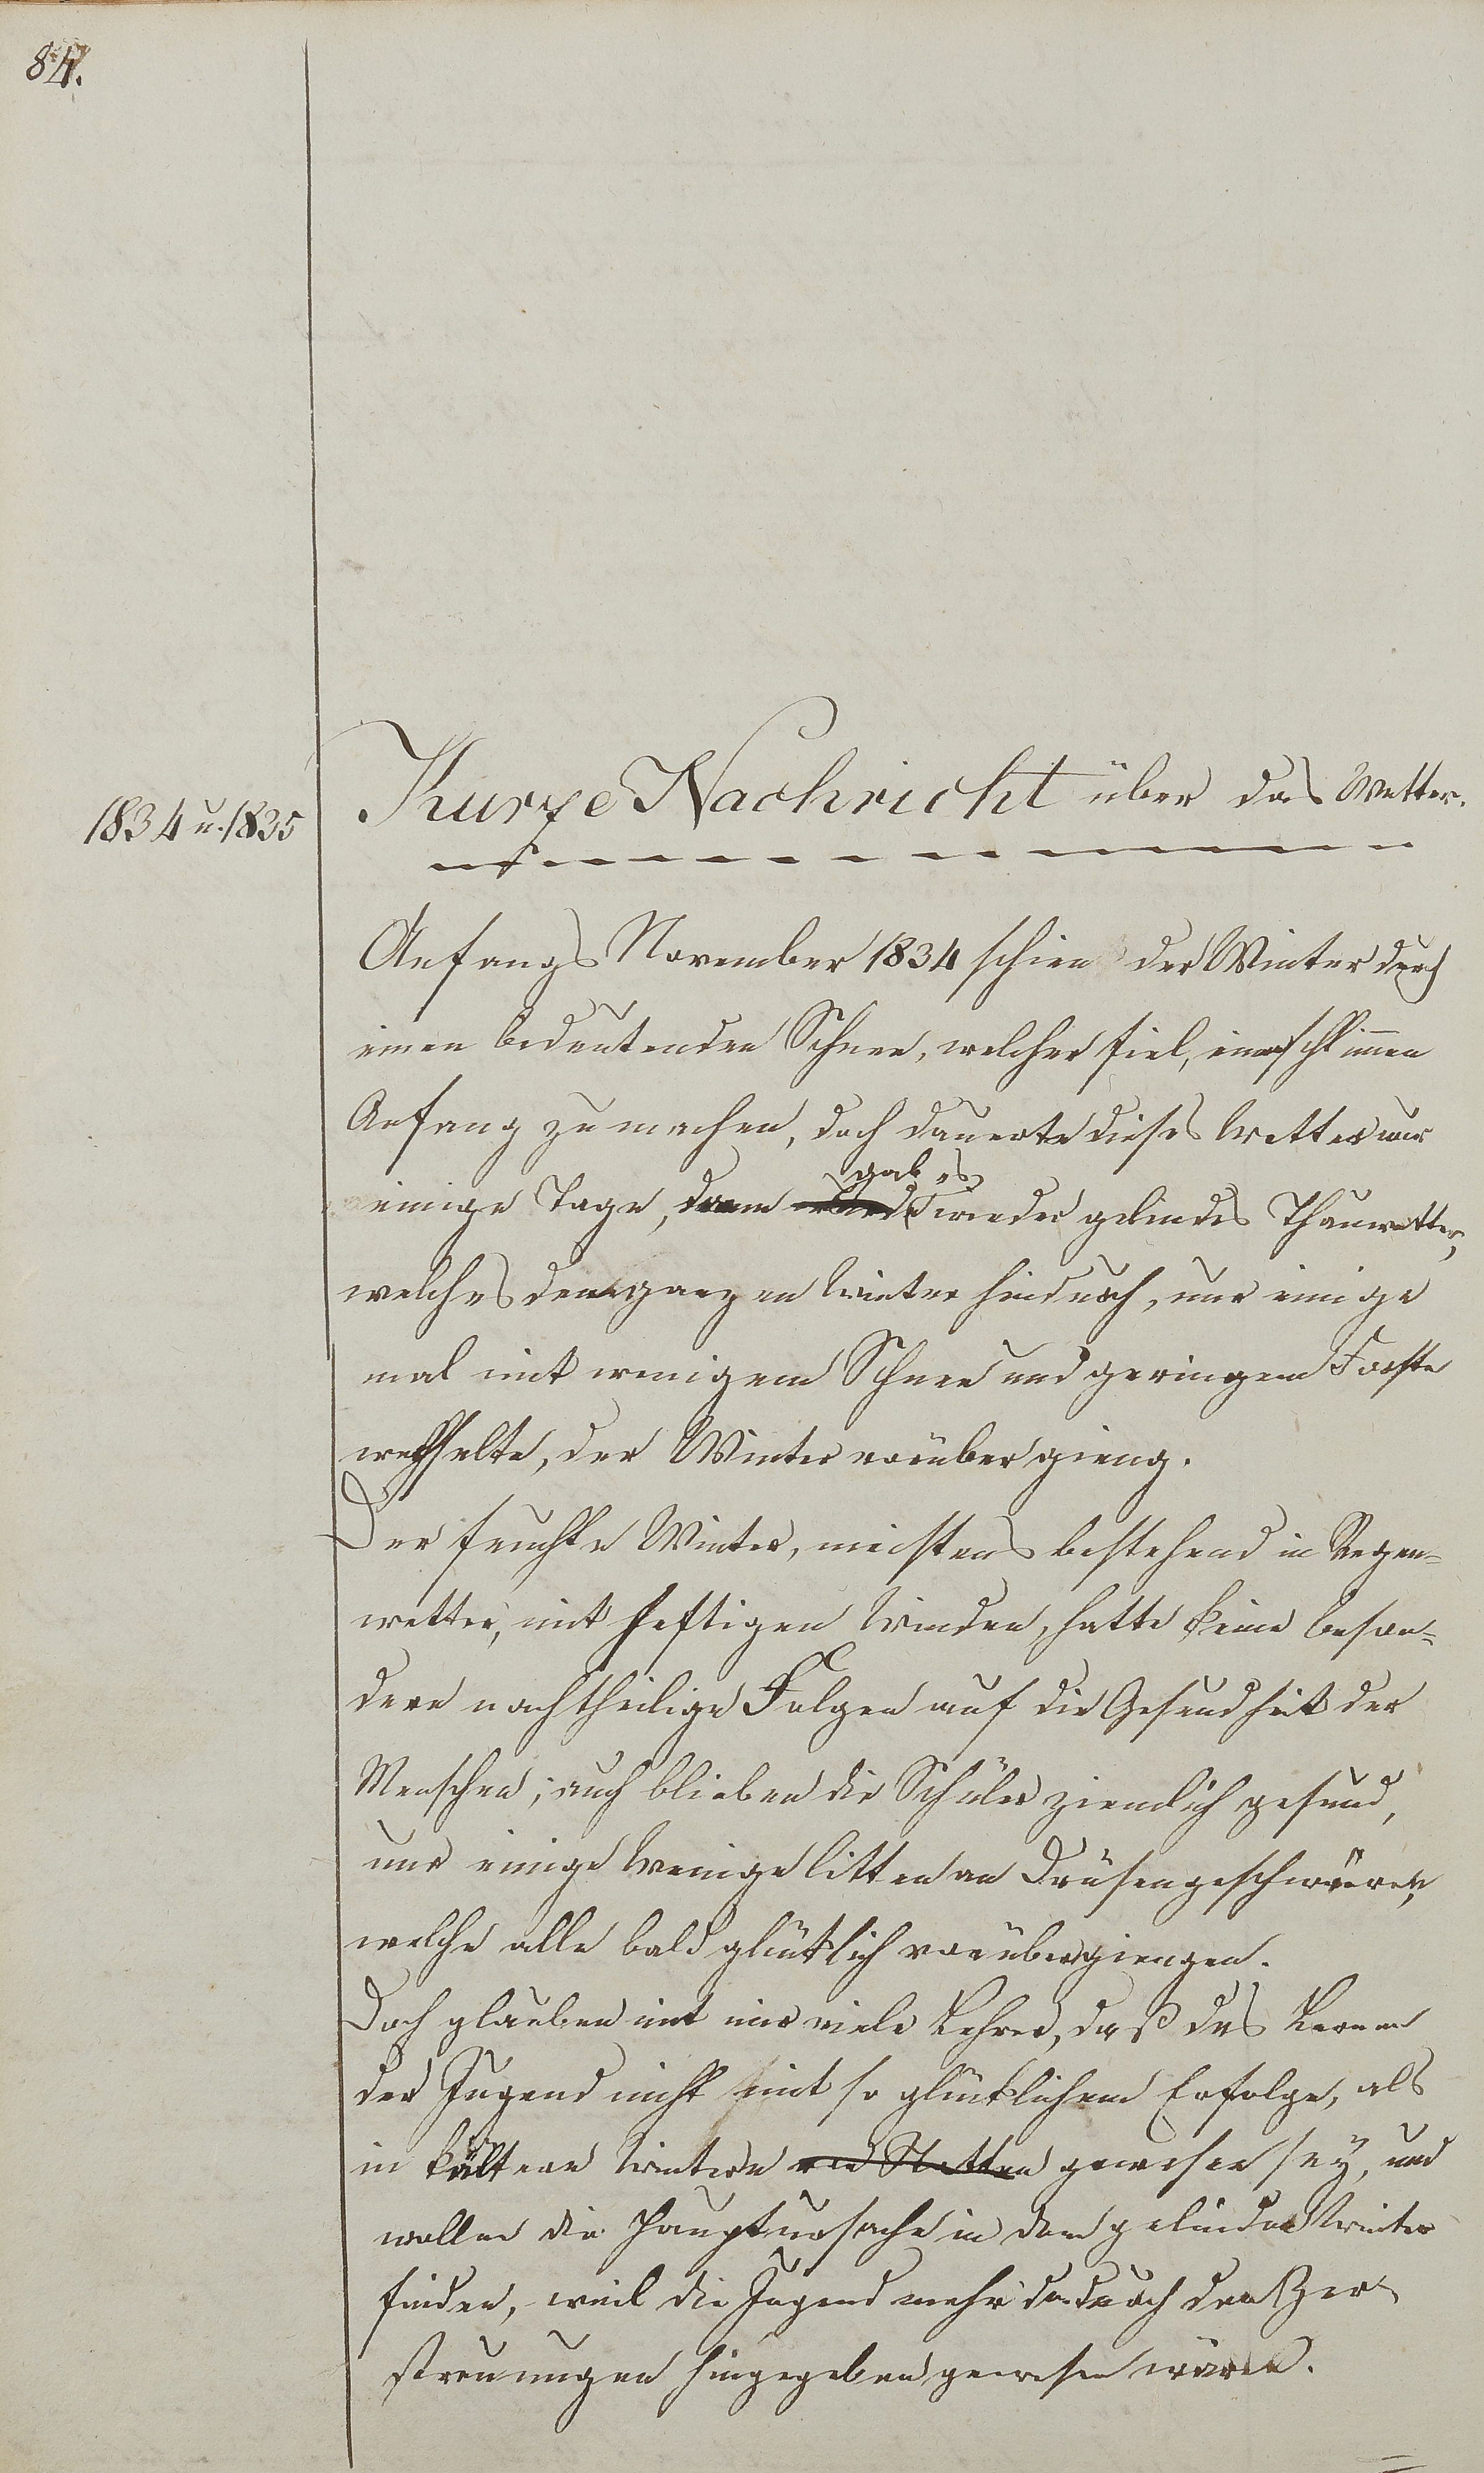 84.
1834 u. 1835
Kurze Nachricht über das Wetter.
Anfangs November 1834 schien der Winter durch
einen bedeutenden Schnee, welcher fiel, einen schlimmen
Anfang zu machen, doch dauerte dieses Wetter nur
gab es
einige Tage, dann wieder gelindes Thauwetter,
welches den ganzen Winter hindurch, nur einige
mal mit wenigem Schnee und geringem Froste
wechselte, der Winter vorüber gieng.
Der feuchte Winter, meistens bestehend in Regen=
wetter, mit heftigen Winden, hatte keine beson=
dere nachtheilige Folgen auf die Gesundheit der
Menschen; auch blieben die Schüler ziemlich gesund,
nur einige wenige litten an Drüsengeschwüren,
welche alle bald glüklich vorübergiengen.
Doch glauben mit mir viele Lehrer, daß das Lernen
der Jugend nicht mit so glücklichem Erfolge, als
in kältern Wintern von Statten gewesen sey, und
wollen die Hauptursache in dem gelinden Winter
finden, weil die Jugend mehr dadurch den Zer=
streuungen hingegeben gewesen wären.